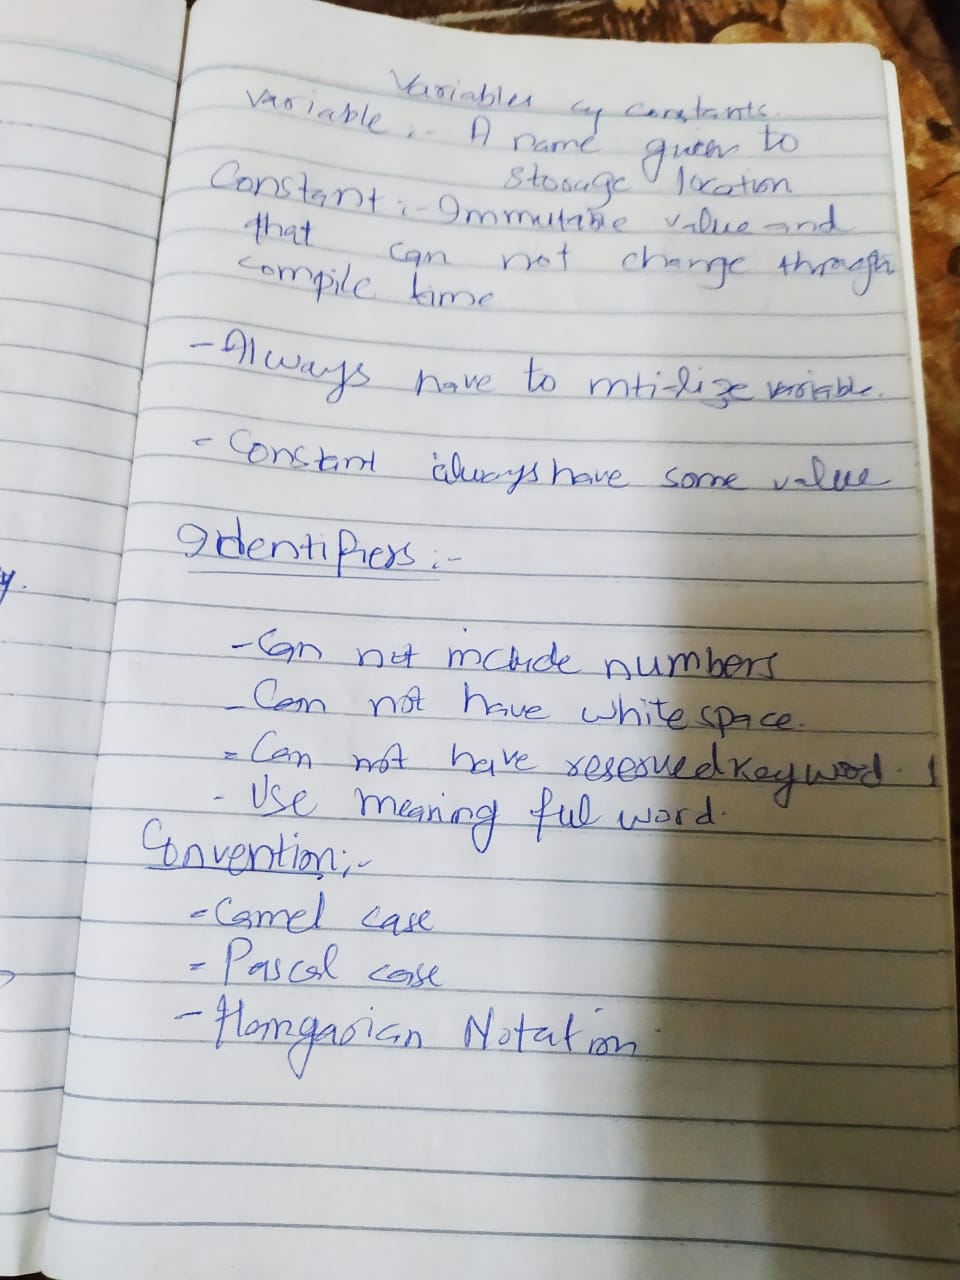 Variables & constants.
Variable :- A name given to
storage location
Constant :- Immutable value and
that can not change through
compile time
- Always have to intilize variable.
- Constant always have some value
Identifiers :-
- Can not include numbers
- Can not have white space.
- Can not have reserved keyword.
- Use meaning ful word.
Convention :-
- Camel case
- Pascal case
- Hangarian Notation